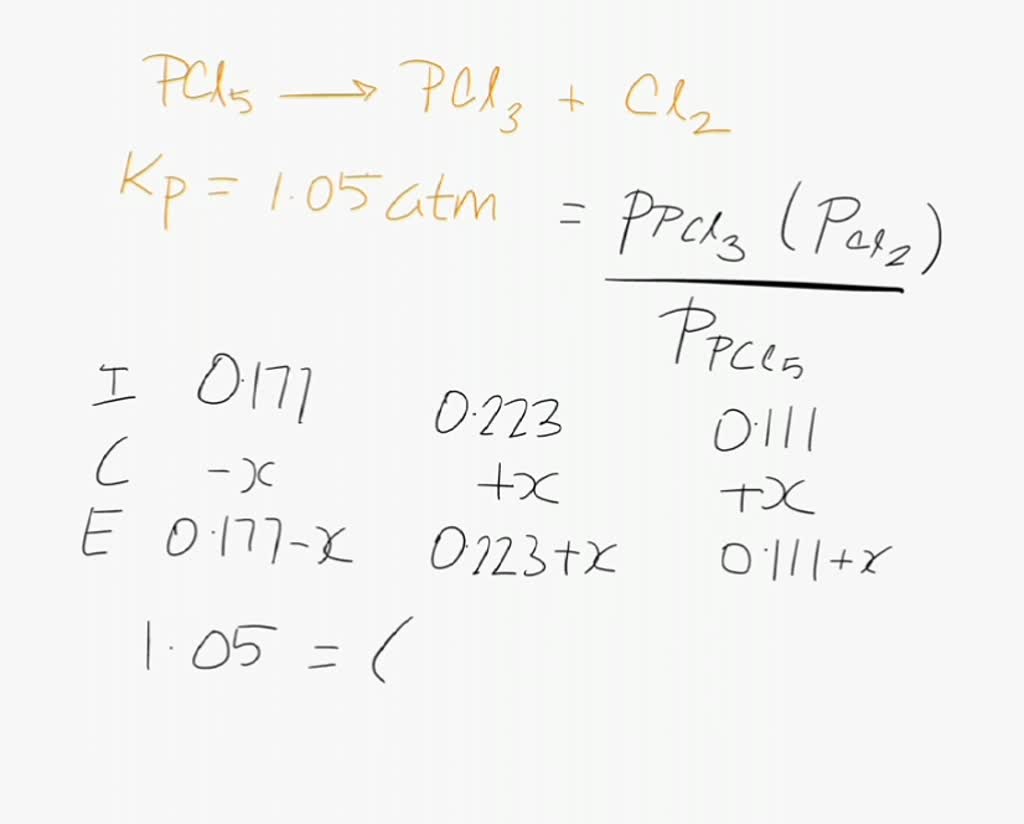 PCl5 ⟶ PCl3 + Cl2
Kp = 1.05 atm = PPCl3 (PCl2)
PPCl5
I 0.177 0.223 0.111
C -x +x +x
E 0.177-x 0.223+x 0.111+x
1.05 = (